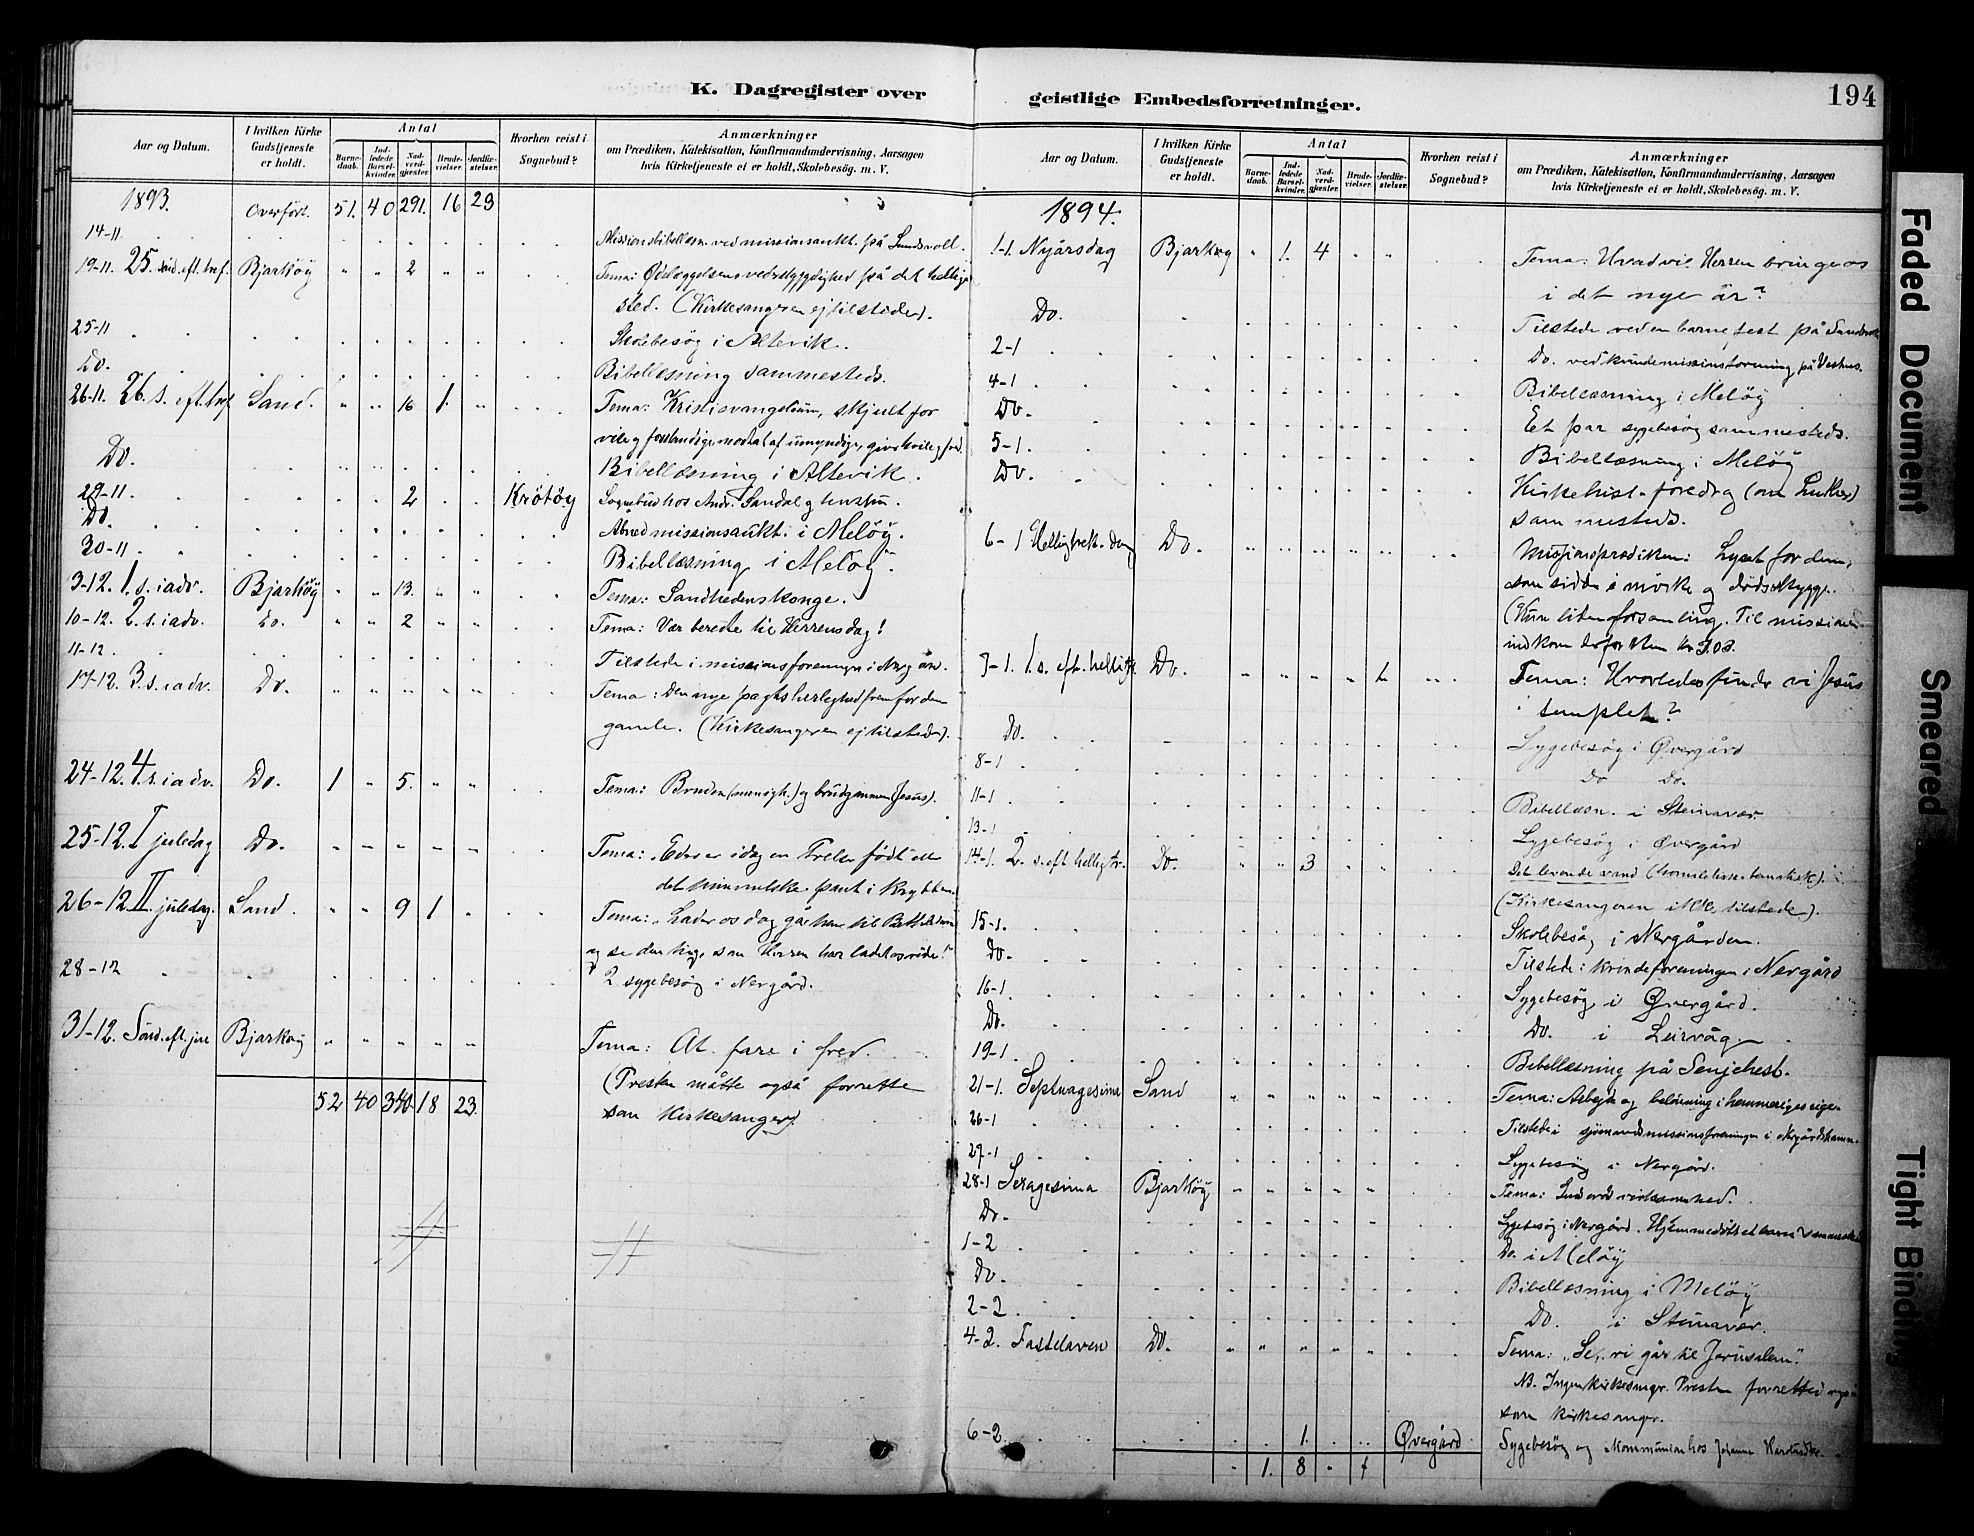 K. Dagregister over
Aar og Datum.
I hvilken Kirke Gudstjeneste er holdt.
Antal
Barne-daab.
Ind-ledede Barsel-kvinder.
Nad-verd-gjester.
Brude-vielser.
Jordfæ-stelser.
Hvorhen reist i Sognebud?
Anmærkninger
om Prædiken, Katekisation, Konfirmandundervisning, Aarsagen
hvis Kirketjeneste ei er holdt, Skolebesøg. m. V.
1893. Overført. 51. 40 291. 16 23
14-11. på Sandsvoll.
19-11. 25. Bjarköy " " 2 " " Tema: Ödelæggelsens vederstyggelighed på det hellige
sted. (Kirkesangeren ej tilstede).
25-11 Skolebesøg i Altevik.
Do. Bibellæsning sammesteds.
26-11. 26. s. eft. tref. Sand. " " 16 1. " Tema: Kristi evangelium, skjult for
Do. Bibellæsning i Altevik.
29-11 2 Krötöy Sognebud hos Andr. Sandal
Do. missionsaukt. i Melöy.
30-11 Bibellæsning i Melöy.
3-12. 1. s. i adv. Bjarköy " " 13. " " Tema: Sandhedens konge.
10-12. 2. s. i adv. Do. " " 2 " " Tema: Vær beredte til Herrens dag!
11-12 Tilstede i missionsforeningen i Nergård.
17-12. 3. s. i adv. Do. " " " " " Tema: Den nye pagts herlighed frem for den
gamle. (Kirkesangeren ej tilstede).
24-12. 4. s. i adv. Do. 1 " 5. " " Tema: Bruden (menigh.) og brudgommen (Jesus).
25-12. I juledag Do. " " " " " Tema: Eder er idag en Frelser født
det himmelske i krybben.
26-12. II. juledag. Sand. " " 9 1 " Tema: Lader os dog gå hen til Bethlehem
og se den ting, som Herren har ladet os vide!
28-12 2 sygebesøg i Nergård.
31-12. Sönd. eft. jul Bjarköy " " " " " Tema: At fare i fred.
(Presten måtte også forrette
som kirkesanger).
52 40 340. 18 23.
geistlige Embedsforretninger.
194
Aar og Datum.
I hvilken Kirke Gudstjeneste er holdt.
Antal
Barne-daab.
Ind-ledede Barsel-kvinder.
Nad-verd-gjester.
Brude-vielser.
Jordfæ-stelser.
Hvorhen reist i Sognebud?
Anmærkninger
om Prædiken, Katekisation, Konfirmandundervisning, Aarsagen
hvis Kirketjeneste ei er holdt, Skolebesøg. m. V.
1894.
1-1. Nyårsdag Bjarköy " 1. 4 " " Tema: Hvad vil Herren bringe os
i det nye år?
Do. Tilstede ved en barnefest på
2-1 Do. ved kvindemissionsforening på
4-1 Bibellæsning i Melöy
Do. Et par sygebesøg sammesteds.
5-1. Bibellæsning i Melöy
Do. Kirkehist. foredrag (om Luther)
sammesteds.
6-1 Helligtrek. dag Do. Missionsprædiken: Lyset for dem,
som sidde i mørke og dødsskygge.
(Kun liten forsamling. Til missionen
indkom
7-1. 1. s. eft. helligtr. Do. " " " " 1. Tema: Hvorledes finde vi Jesus
i templet?
Do. Sygebesøg i Övergård
8-1 Do Do.
11-1 Bibellæsn. i Steinavær
13-1 Sygebesøg i Övergård
14-1. 2. s. eft helligtr. Do. " " 3 " " Det levende vand
(Kirkesangeren tilstede).
15-1. Skolebesøg i Nergården.
Do. Tilstede i kvindeforeningen i Nergård
16-1. Sygebesøg i Övergård.
Do. Do. i Leirvåg
19-1. Bibellæsning på Senjehest.
21-1. Septuagesima Sand " " " " " Tema: Arbejde og belönning i
26-1 Tilstede i sjömandsmissionsforeningen i
27-1 Sygebesøg i Nergård.
28-1 Sexagesima Bjarköy " " " " " Tema:
Do. Sygebesøg i Nergård. Hjemmedöbt et barn
1-2 Do. i Melöy
Do. Bibellæsning i Melöy
2-2. Do. i Steinavær.
4-2. Fastelaven Do. " " " " " Tema: "Se, vi går til Jerusalem".
NB. Ingen kirkesanger. Presten forrettet også
som kirkesanger.
6-2. 1. Övergård Sygebesøg og kommunion hos Johanne
" 1. 8 " 1
Faded Document
Smeared
Tight Binding